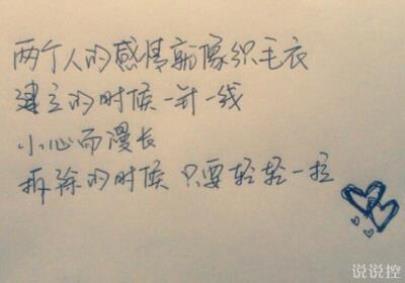 两个人的感情就像织毛衣
建立的时候一针一线
小心而漫长
拆除的时候 只要轻轻一拉
说说控